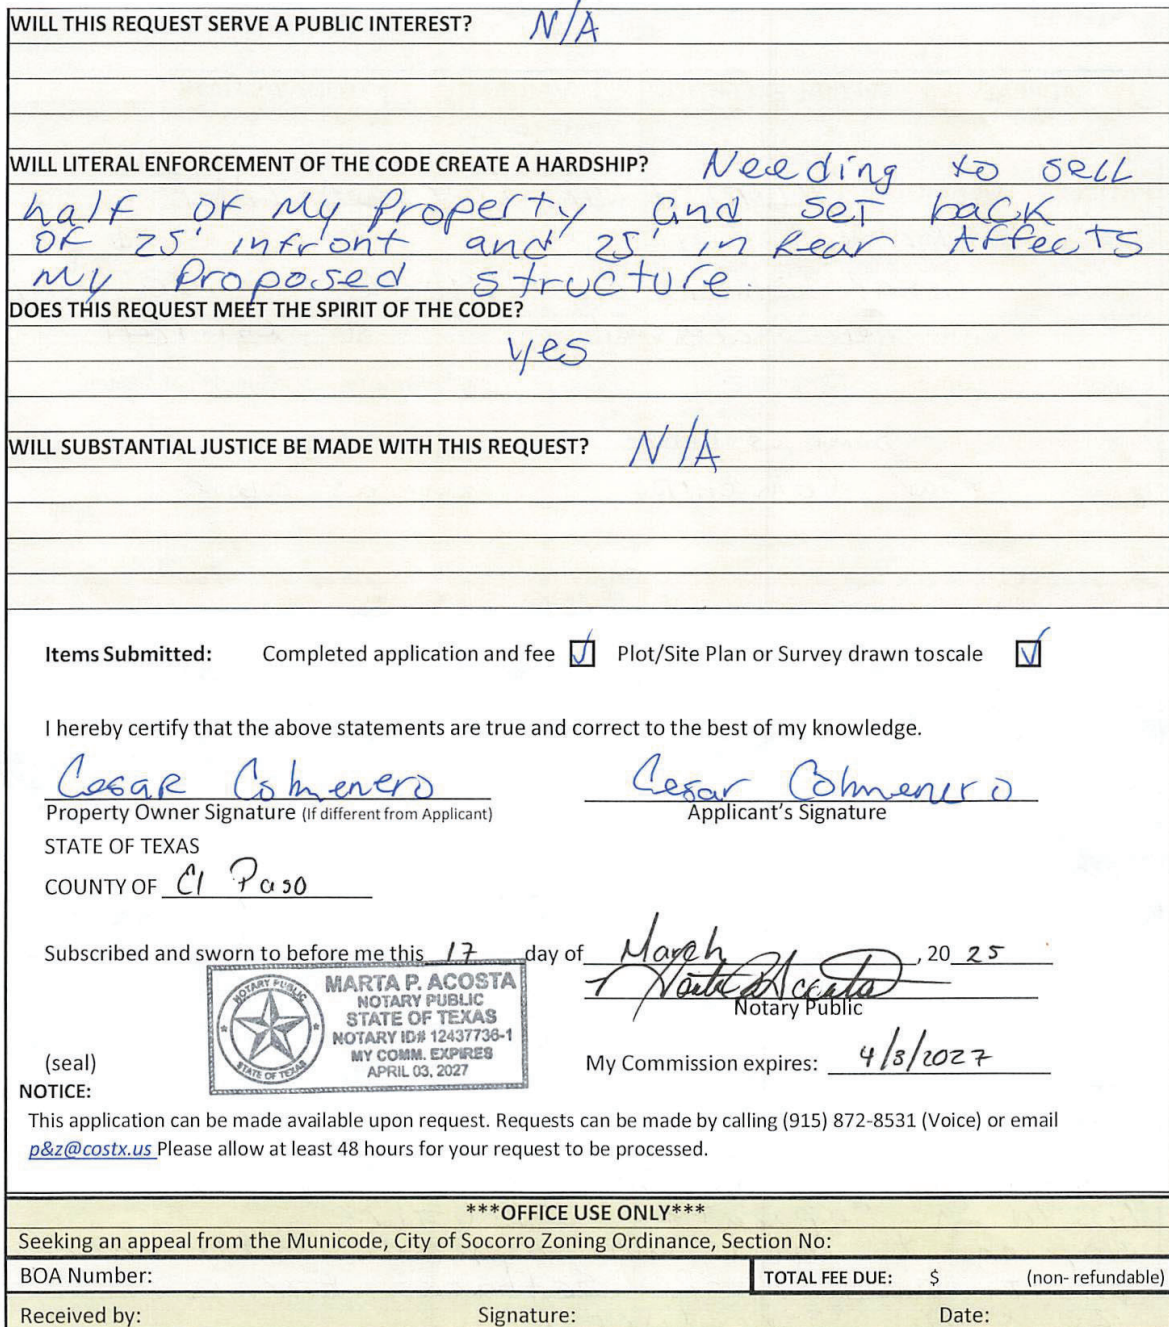 WILL THIS REQUEST SERVE A PUBLIC INTEREST? N/A
WILL LITERAL ENFORCEMENT OF THE CODE CREATE A HARDSHIP? Needing to sell
half of My Property and set back
of 25' infront and 25' in Rear Affects
My Proposed structure.
DOES THIS REQUEST MEET THE SPIRIT OF THE CODE?
yes
WILL SUBSTANTIAL JUSTICE BE MADE WITH THIS REQUEST? N/A
Items Submitted: Completed application and fee ☑ Plot/Site Plan or Survey drawn toscale ☑
I hereby certify that the above statements are true and correct to the best of my knowledge.
Cesar Colmenero Cesar Colmenero
Property Owner Signature (If different from Applicant) Applicant's Signature
STATE OF TEXAS
COUNTY OF El Paso
Subscribed and sworn to before me this 17 day of March, 20 25
Marta P Acosta
Notary Public
NOTARY PUBLIC
STATE OF TEXAS
MARTA P. ACOSTA
NOTARY PUBLIC
STATE OF TEXAS
NOTARY ID# 12437736-1
MY COMM. EXPIRES
APRIL 03, 2027
(seal) My Commission expires: 4/3/2027
NOTICE:
This application can be made available upon request. Requests can be made by calling (915) 872-8531 (Voice) or email
p&z@costx.us Please allow at least 48 hours for your request to be processed.
***OFFICE USE ONLY***
Seeking an appeal from the Municode, City of Socorro Zoning Ordinance, Section No:
BOA Number: TOTAL FEE DUE: $ (non- refundable)
Received by: Signature: Date: